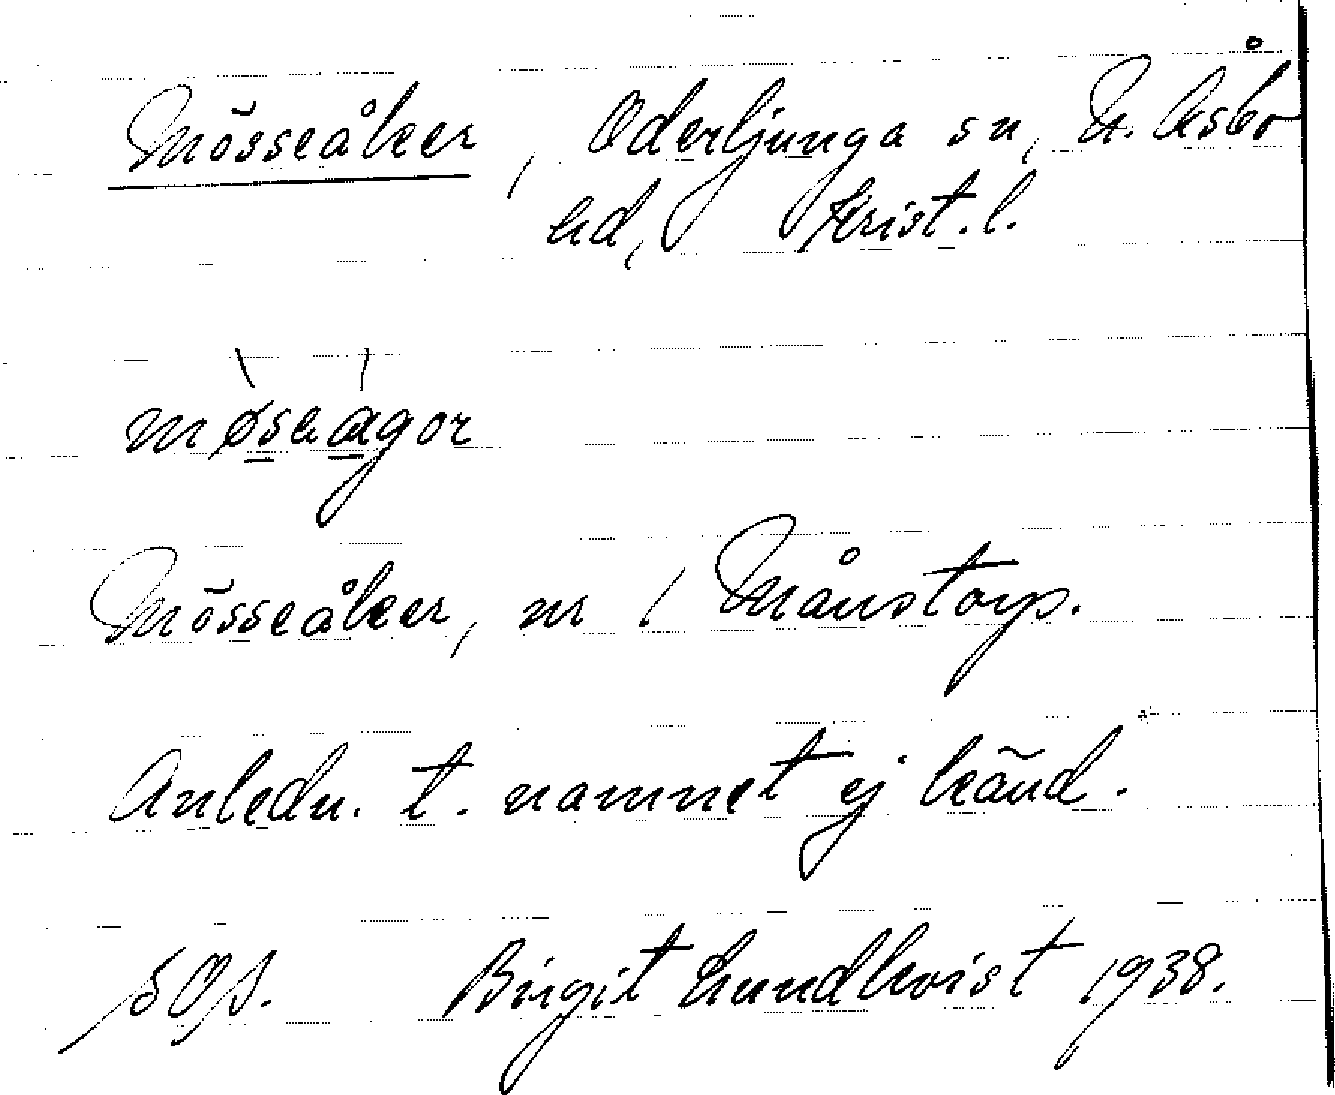 Mösseåker, Oderljunga sn, N. Åsbo
hd, Krist. l.
møsəågor
Mösseåker, nr / Månstorp.
Anledn. t. namnet ej känd.
Birgit Lundkvist 1938.